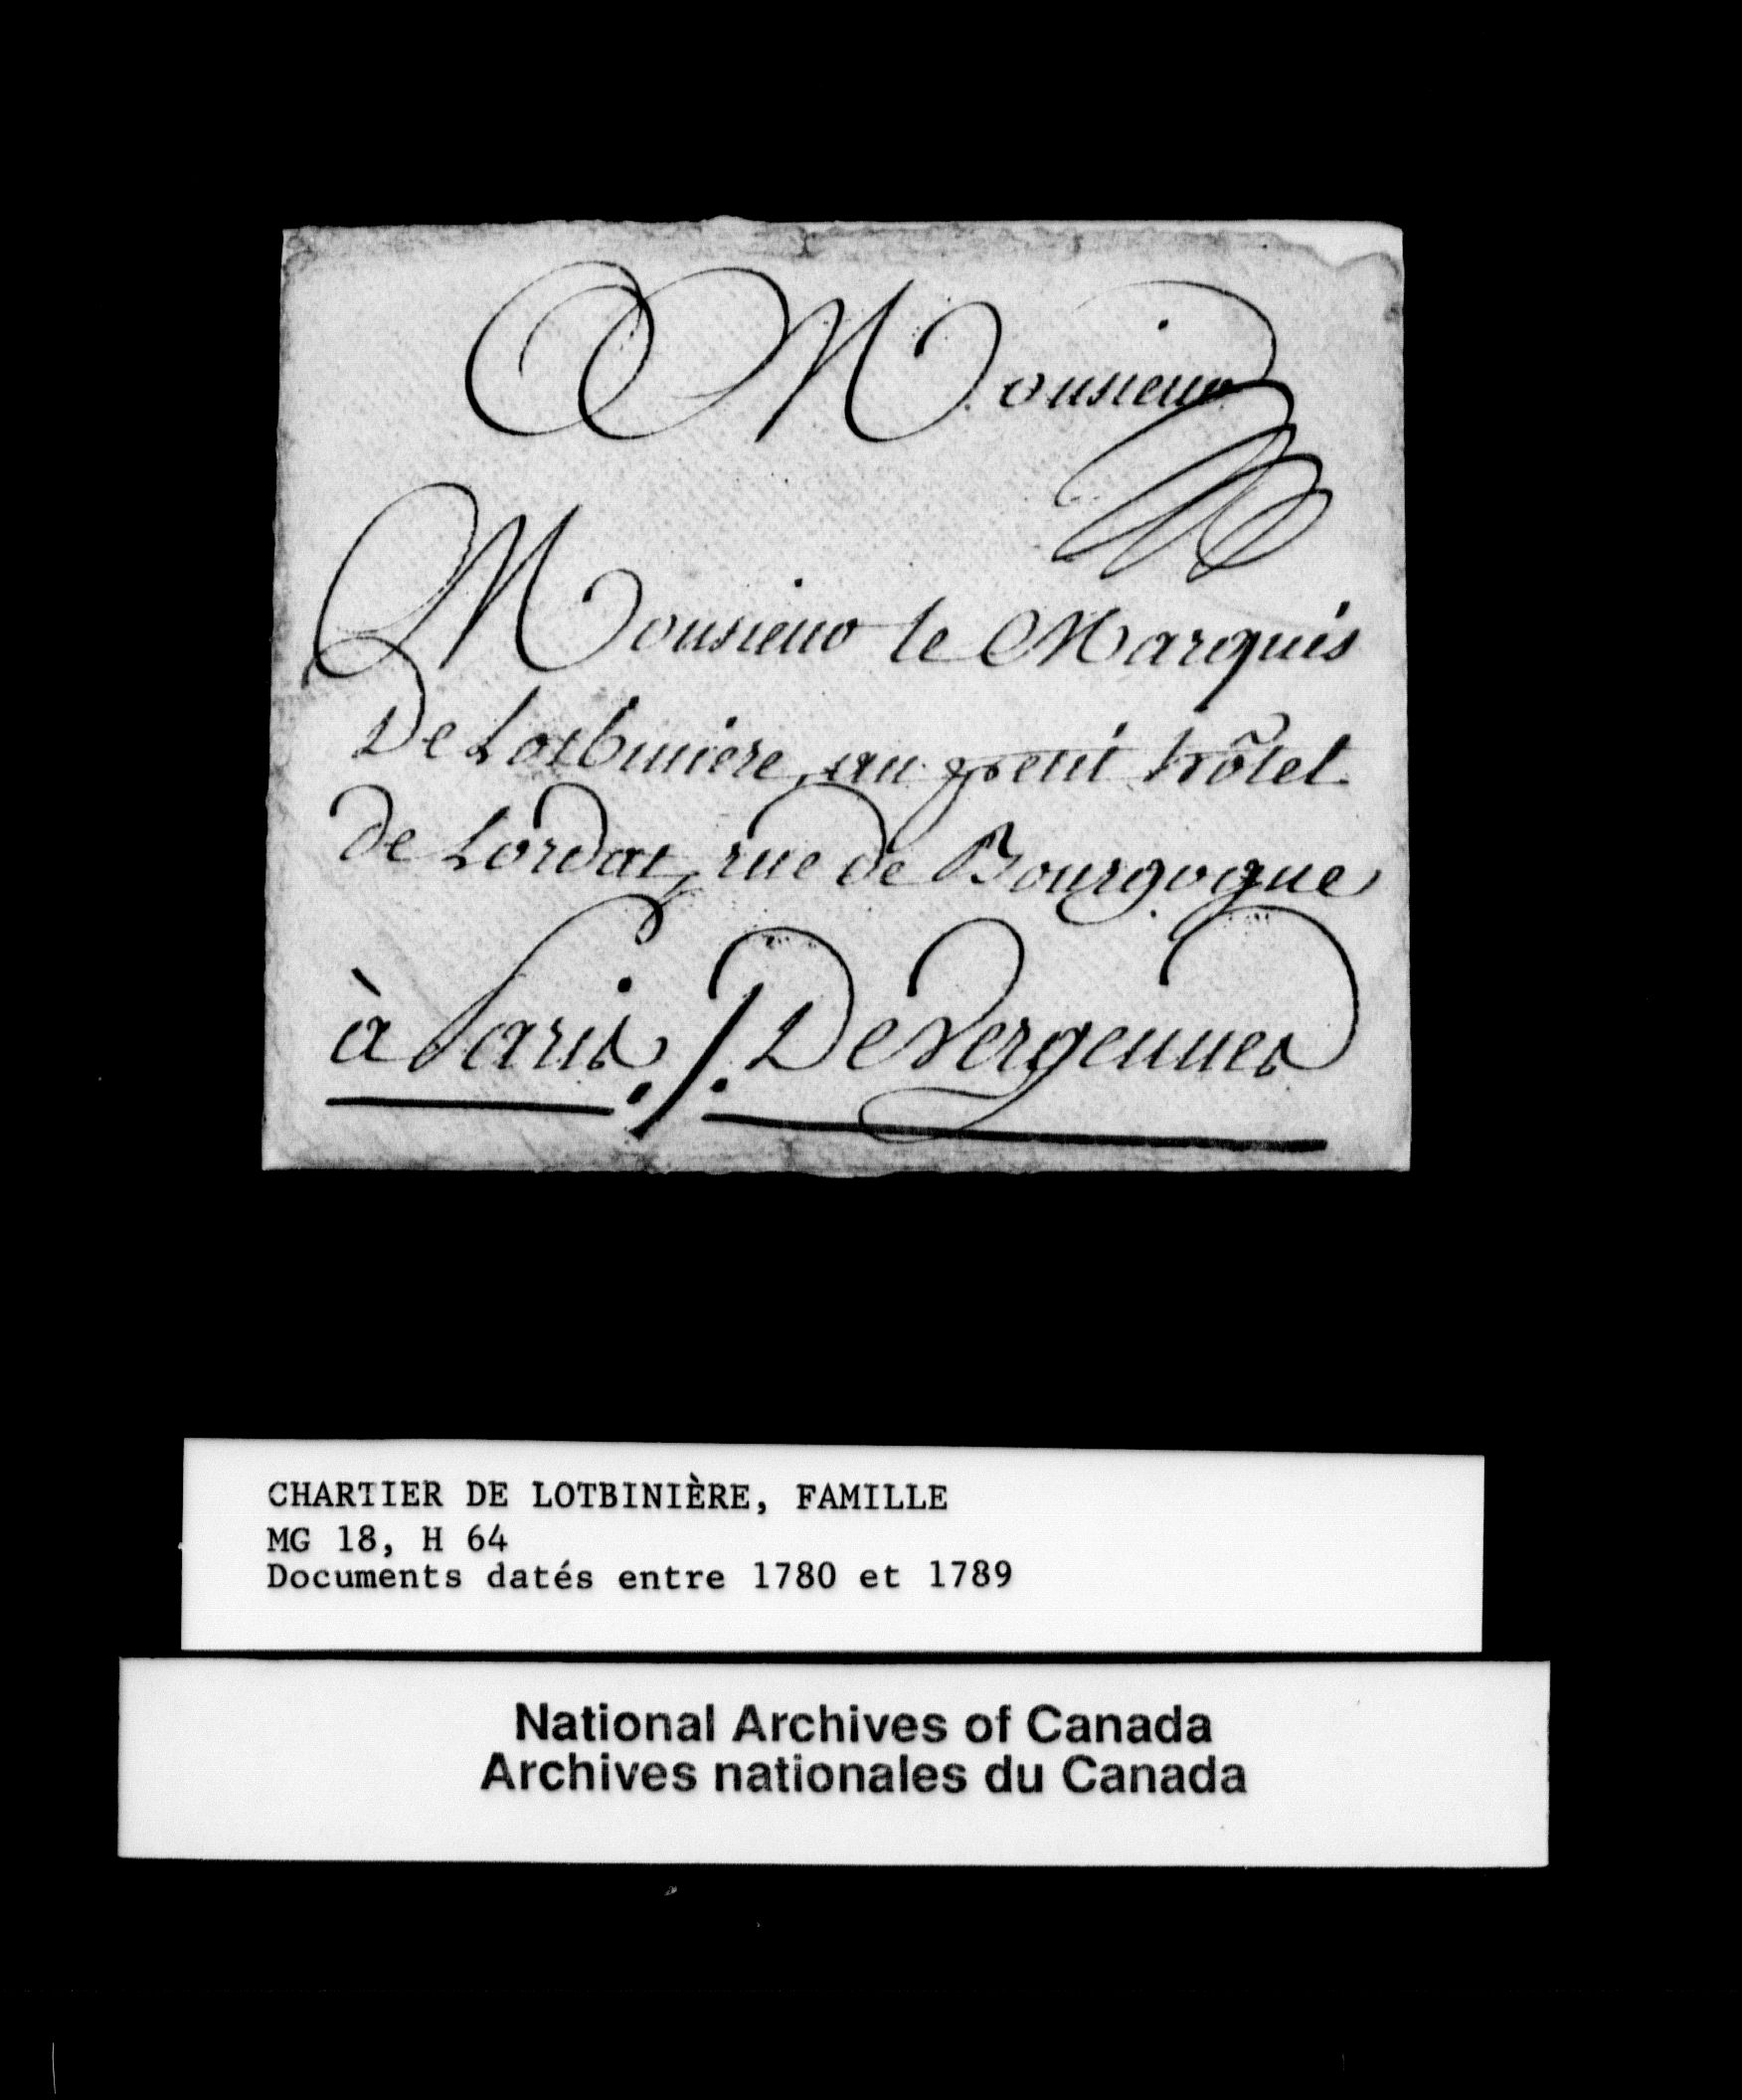 Monsieur
Monsieur le Marquis
De Lotbiniere, au petit hôtel
de Lordat, rue de Bourgogne
à Paris ./. De Vergennes
CHARTIER DE LOTBINIÈRE, FAMILLE
MG 18, H 64
Documents datés entre 1780 et 1789
National Archives of Canada
Archives nationales du Canada